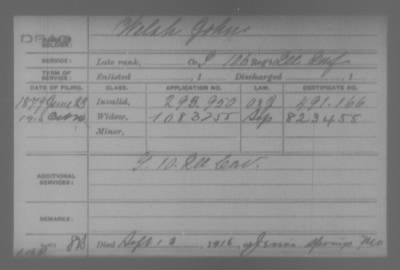 Welsh John
SOLDIER:
SERVICE: Late rank, Co. I 106 Reg't Ill Inf
TERM OF SERVICE: Enlisted , 1 Discharged , 1
DATE OF FILING. CLASS. APPLICATION NO. LAW. CERTIFICATE NO.
1879 June Invalid, 292.950 491.166
1916 Oct Widow, 1083755 Sep 823455
Minor,
ADDITIONAL SERVICES: 10 Ill Cav.
REMARKS:
Died Sept 1916, at Springs Mo